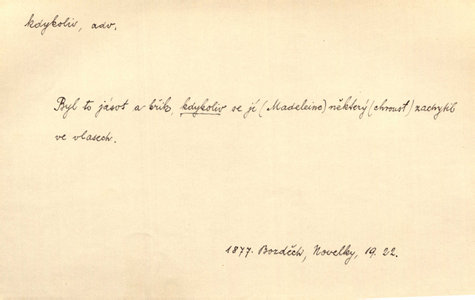 kdykoliv, adv.
Byl to jásot a křik, kdykoliv se jí (Madeleine) některý (chroust) zachytil
ve vlasech.
1877. Bozděch, Novelky, 19. 22.